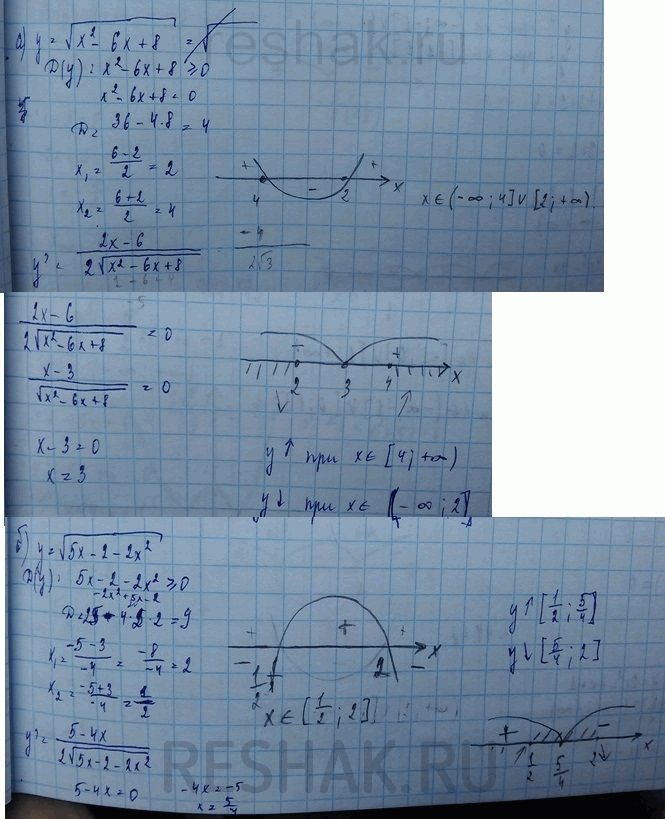 а) y = √(x² - 6x + 8) = √
reshak.ru
D(y): x² - 6x + 8 ≥ 0
x² - 6x + 8 = 0
D = 36 - 4·8 = 4
x₁ = (6-2)/2 = 2
x₂ = (6+2)/2 = 4
+ - +
4 2 x
x ∈ (-∞; 4] ∪ [2; +∞).
y' = (2x - 6)/(2√(x² - 6x + 8))
-4/(2√3)
(2x - 6)/(2√(x² - 6x + 8)) = 0
(x - 3)/√(x² - 6x + 8) = 0
x - 3 = 0
x = 3
- +
2 3 4 x
↓ ↑
y↑ при x ∈ [4; +∞)
y↓ при x ∈ (-∞; 2]
б) y = √(5x - 2 - 2x²)
D(y): 5x - 2 - 2x² ≥ 0
-2x² + 5x - 2
D = 25 - 4·2·2 = 9
x₁ = (-5-3)/-4 = -8/-4 = 2
x₂ = (-5+3)/-4 = 1/2
+ + +
- 1/2 2 - x
x ∈ [1/2; 2]
y↑ [1/2; 5/4]
y↓ [5/4; 2]
y' = (5 - 4x)/(2√(5x - 2 - 2x²))
+ -
↑ 1/2 5/4 2 ↓ x
5 - 4x = 0
-4x = -5
x = 5/4
RESHAK.RU